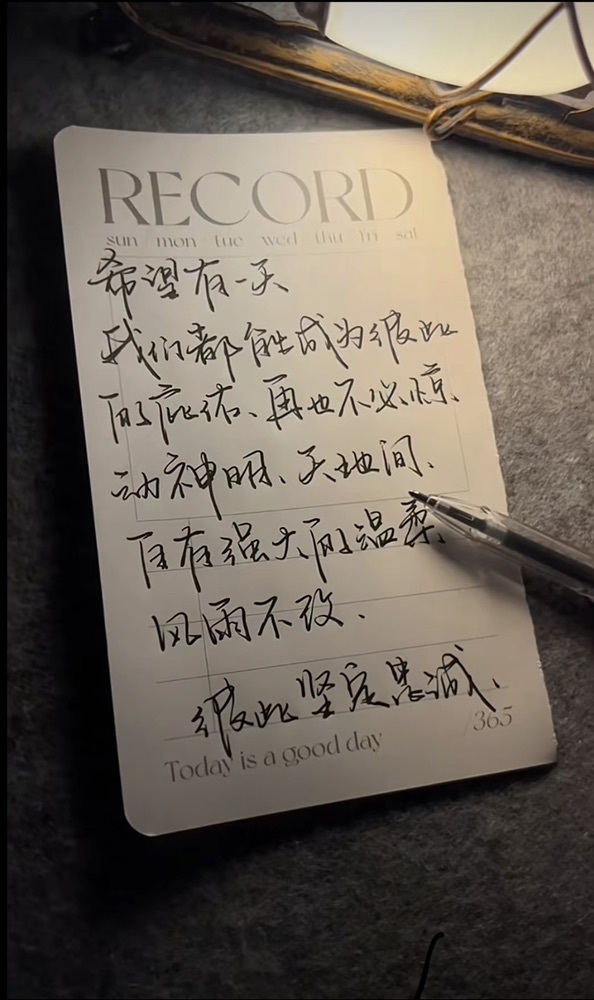 RECORD
sun mon tue wed thu fri sat
希望有一天
我们都能成为彼此
的庇佑、再也不必惊、
动神明、天地间、
自有强大的温柔、
风雨不改、
彼此坚定忠诚、
/365
Today is a good day